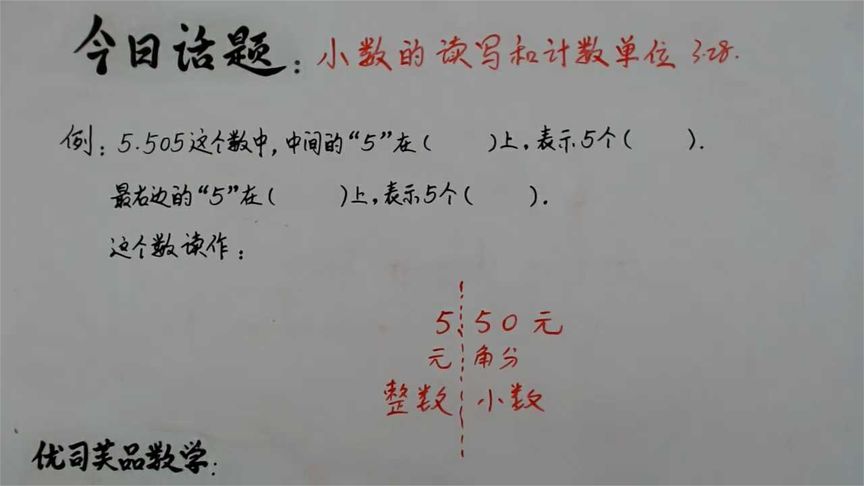 今日话题：小数的读写和计数单位 3.28.
例：5.505这个数中，中间的“5”在（ ）上，表示5个（ ）.
最右边的“5”在（ ）上，表示5个（ ）.
这个数读作：
5.50元
元 角分
整数 小数
优司芙品数学：